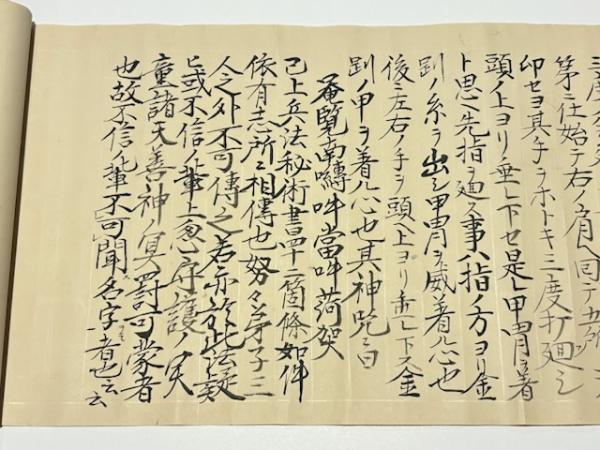 第二在始テ右ノ肩ヘ回テ五
印セヨ其手ヲホトキ三度打廻シ
頭ノ上ヨリ垂レ下セ是レ甲冑ヲ着
ト思ヘ先指ヲ廻ス事ハ指ノ方ヨリ金
剛ノ糸ヲ出シ甲冑ヲ威着ル心也
後ニ左右ノ手ヲ頭ヘ上ヨリ垂レ下ス金
剛ノ甲ヲ着ル心也其神咒ニ曰
唵覧南囀吽當吽荷架
已上兵法秘術書四十二箇條如件
依有志所ニ相傳也努々弟子三
人之外不可傳之若亦於此法疑
ヒ或不信ノ輩上忩守護ノ天
童諸天善神ノ冥罰可蒙者
也故不信ノ輩不可聞名字者也云云